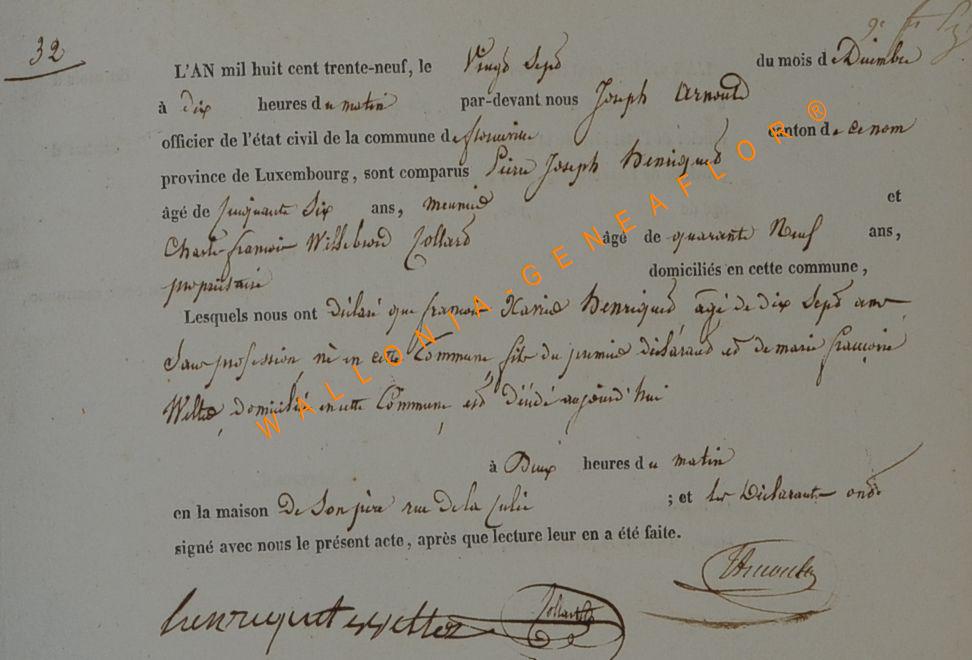 32
L'AN mil huit cent trente-neuf, le Vingt Sept du mois d Décembre
à dix heures du matin par-devant nous Joseph Arnould
officier de l'état civil de la commune de florenville canton de ce nom
province de Luxembourg, sont comparus Pierre Joseph Henriquet
âgé de Cinquante Six ans, meunier et
Charle françois Willebrord Collard âgé de quarante Neuf ans,
propriétaire domiciliés en cette commune,
Lesquels nous ont déclaré que françois Xavier Henriquet âgé de dix Sept ans
Sans profession né en cette Commune fils du premier déclarant et de marie françoise
Welter domicilié en cette Commune est décédé aujourd'hui
à Deux heures du matin
en la maison de Son père rue de la Culée ; et les Déclarants ont
signé avec nous le présent acte, après que lecture leur en a été faite.
henriquet welter Collard JArnould
WALLONIA-GENEAFLOR ®